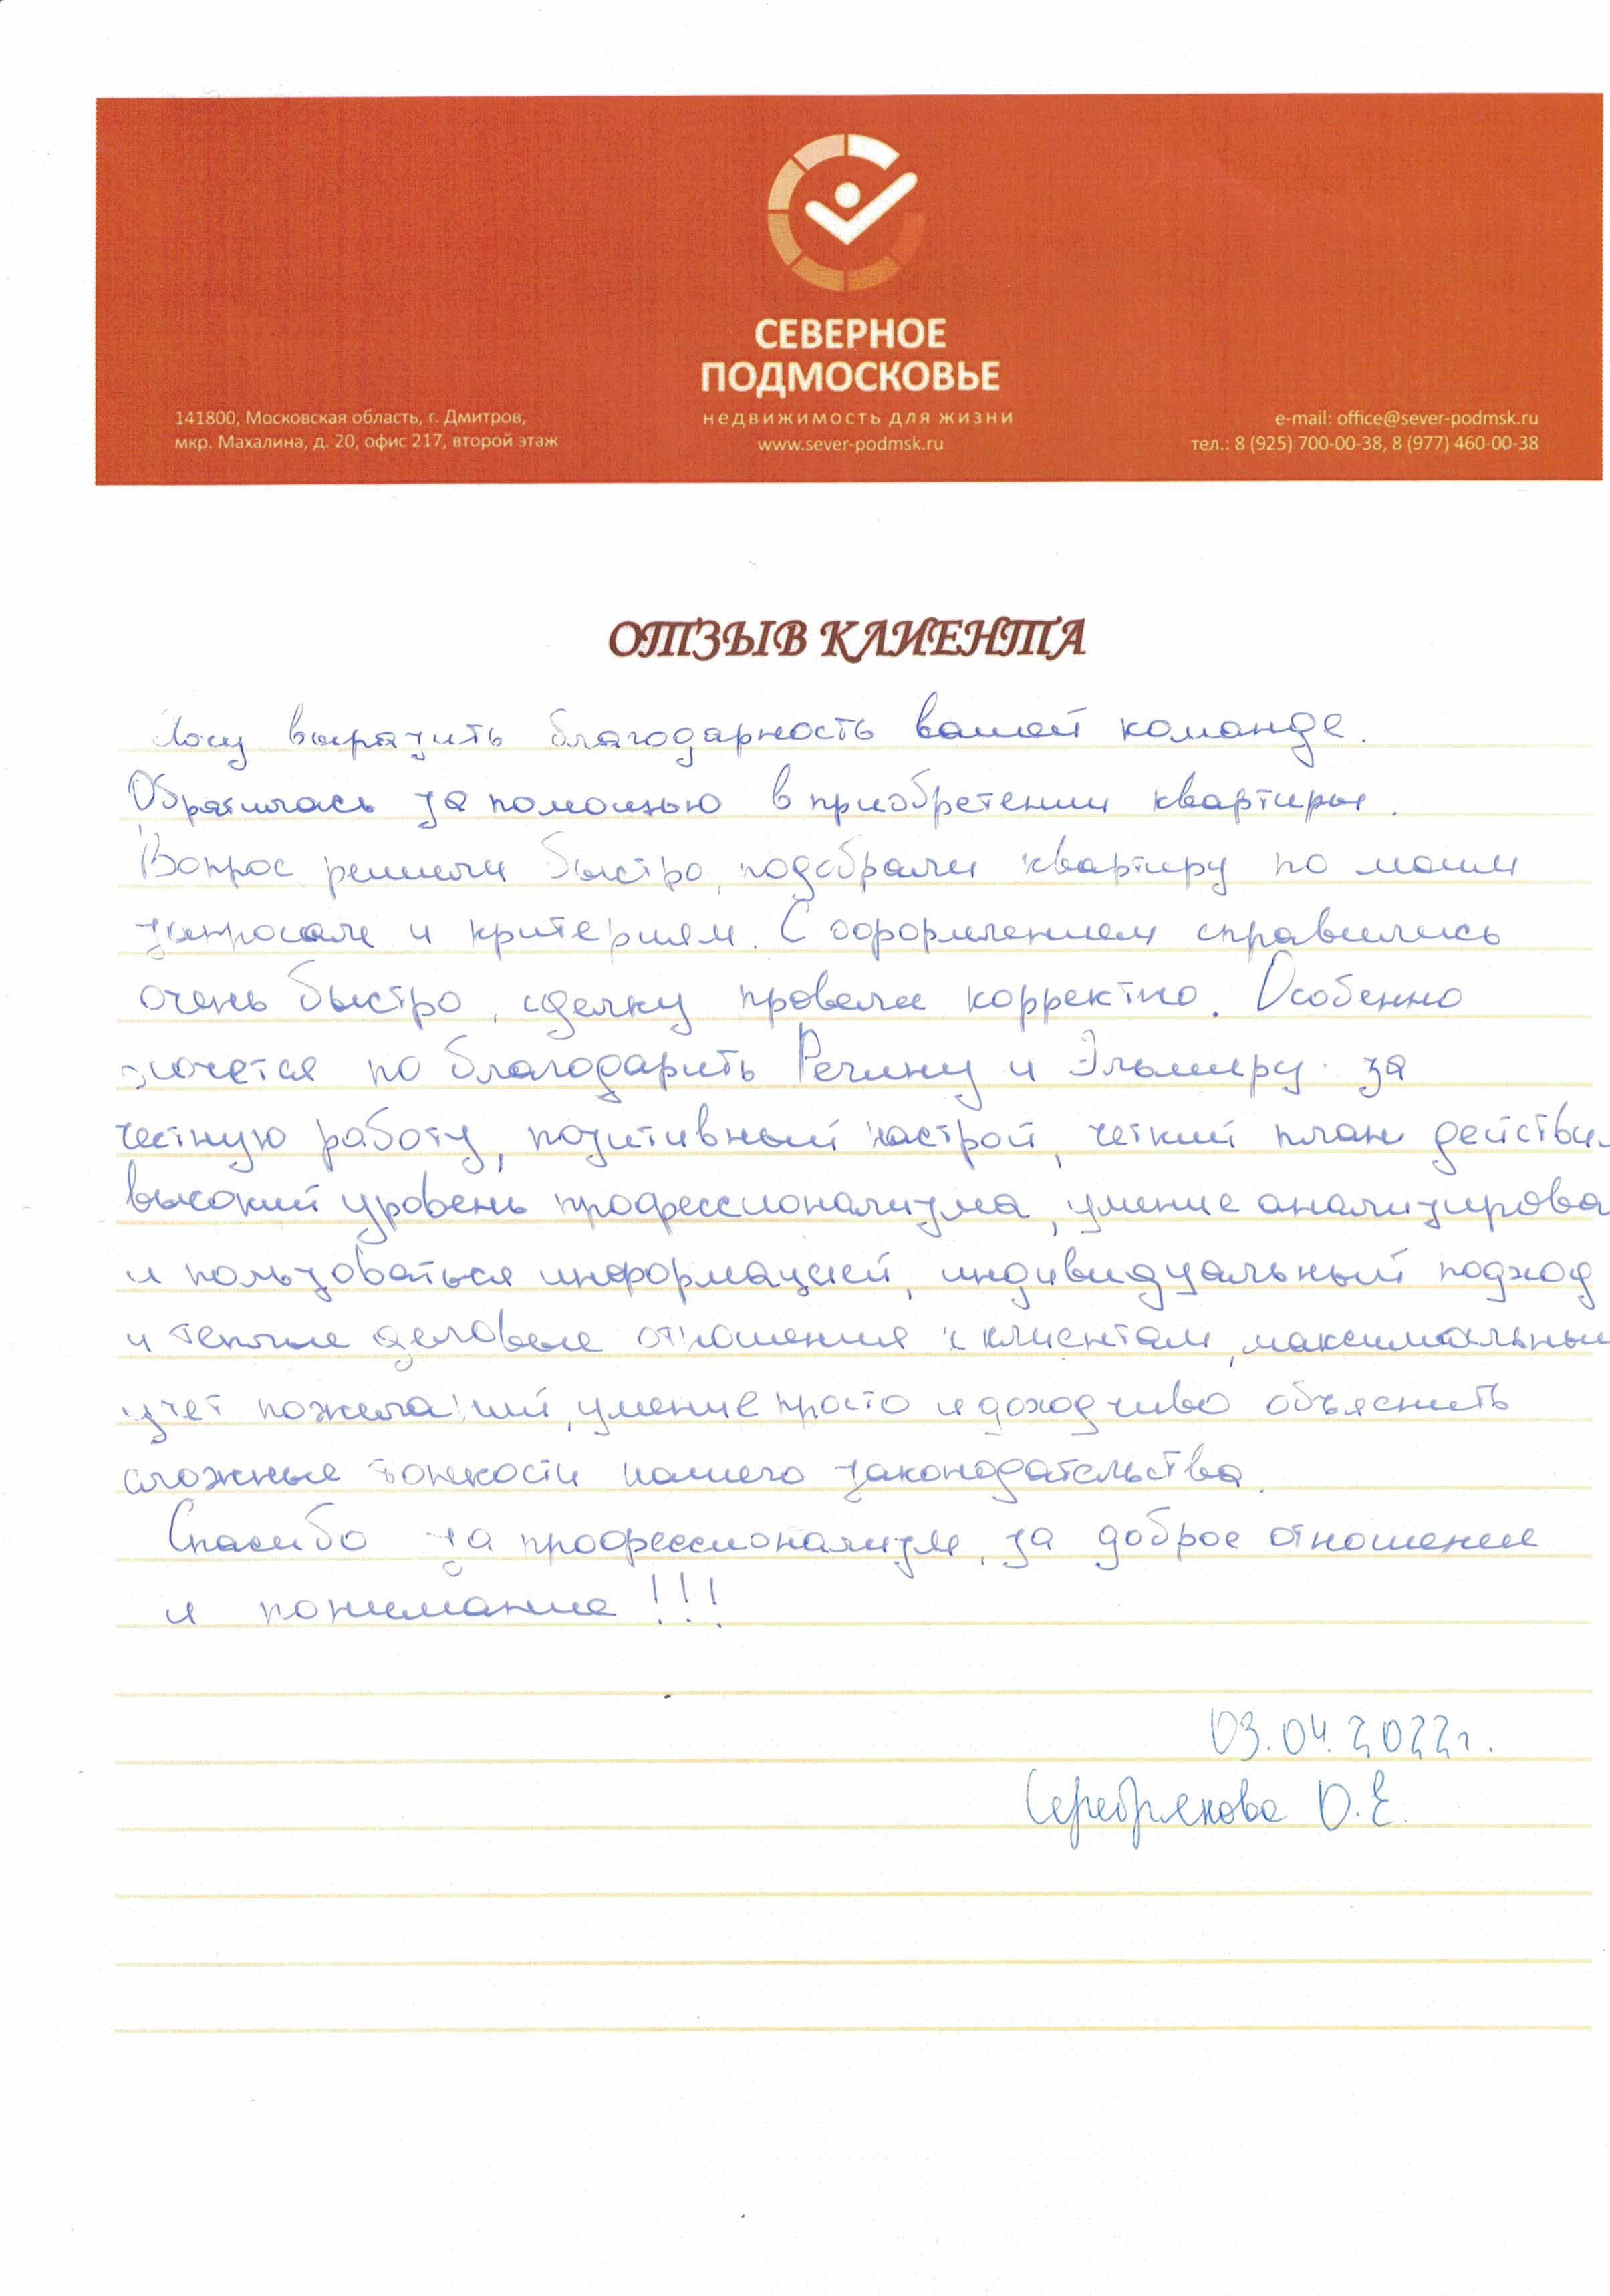 СЕВЕРНОЕ
ПОДМОСКОВЬЕ
недвижимость для жизни
www.sever-podmsk.ru
141800, Московская область, г. Дмитров,
мкр. Махалина, д. 20, офис 217, второй этаж
e-mail: office@sever-podmsk.ru
тел.: 8 (925) 700-00-38, 8 (977) 460-00-38
ОТЗЫВ КЛИЕНТА
Хочу выразить благодарность вашей команде.
Обратилась за помощью в приобретении квартиры.
Вопрос решили быстро, подобрали квартиру по моим
запросам и критериям. С оформлением справились
очень быстро, сделку провели корректно. Особенно
хочется поблагодарить Регину и Эльмиру за
честную работу, позитивный настрой, четкий план действи
высокий уровень профессионализма, умение анализирова
и пользоваться информацией, индивидуальный подход
и теплые деловые отношения к клиентам, максимальны
учет пожеланий, умение просто и доходчиво объяснить
сложные тонкости нашего законодательства.
Спасибо за профессионализм, за доброе отношение
и понимание!!!
03.04.2022г.
Серебрякова О.Е.